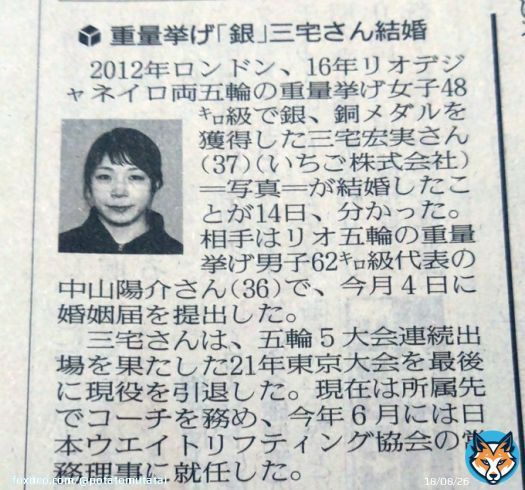 重量挙げ「銀」三宅さん結婚
2012年ロンドン、16年リオデジ
ャネイロ両五輪の重量挙げ女子48
㌔級で銀、銅メダルを
獲得した三宅宏実さん
(37)(いちご株式会社)
＝写真＝が結婚したこ
とが14日、分かった。
相手はリオ五輪の重量
挙げ男子62㌔級代表の
中山陽介さん(36)で、今月4日に
婚姻届を提出した。
三宅さんは、五輪5大会連続出
場を果たした21年東京大会を最後
に現役を引退した。現在は所属先
でコーチを務め、今年6月には日
本ウエイトリフティング協会の常
務理事に就任した。
18/08/26